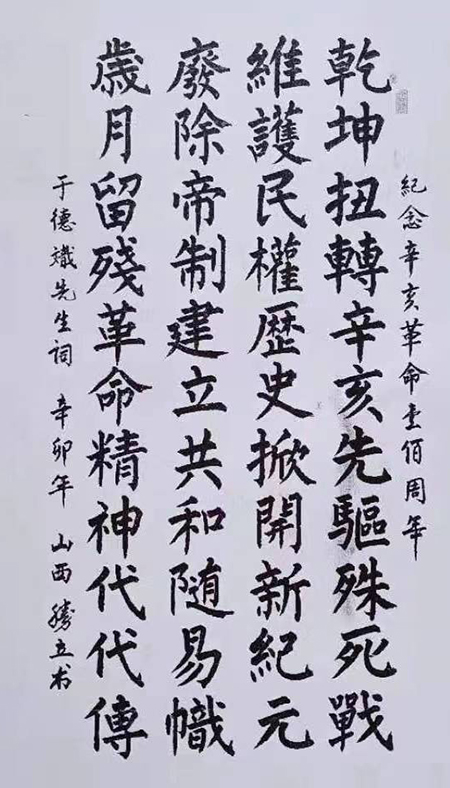 紀念辛亥革命壹佰周年
乾坤扭轉辛亥先驅殊死戰
維護民權歷史掀開新紀元
廢除帝制建立共和随易幟
歲月留殘革命精神代代傳
于德熾先生詞 辛卯年 山西勝立书